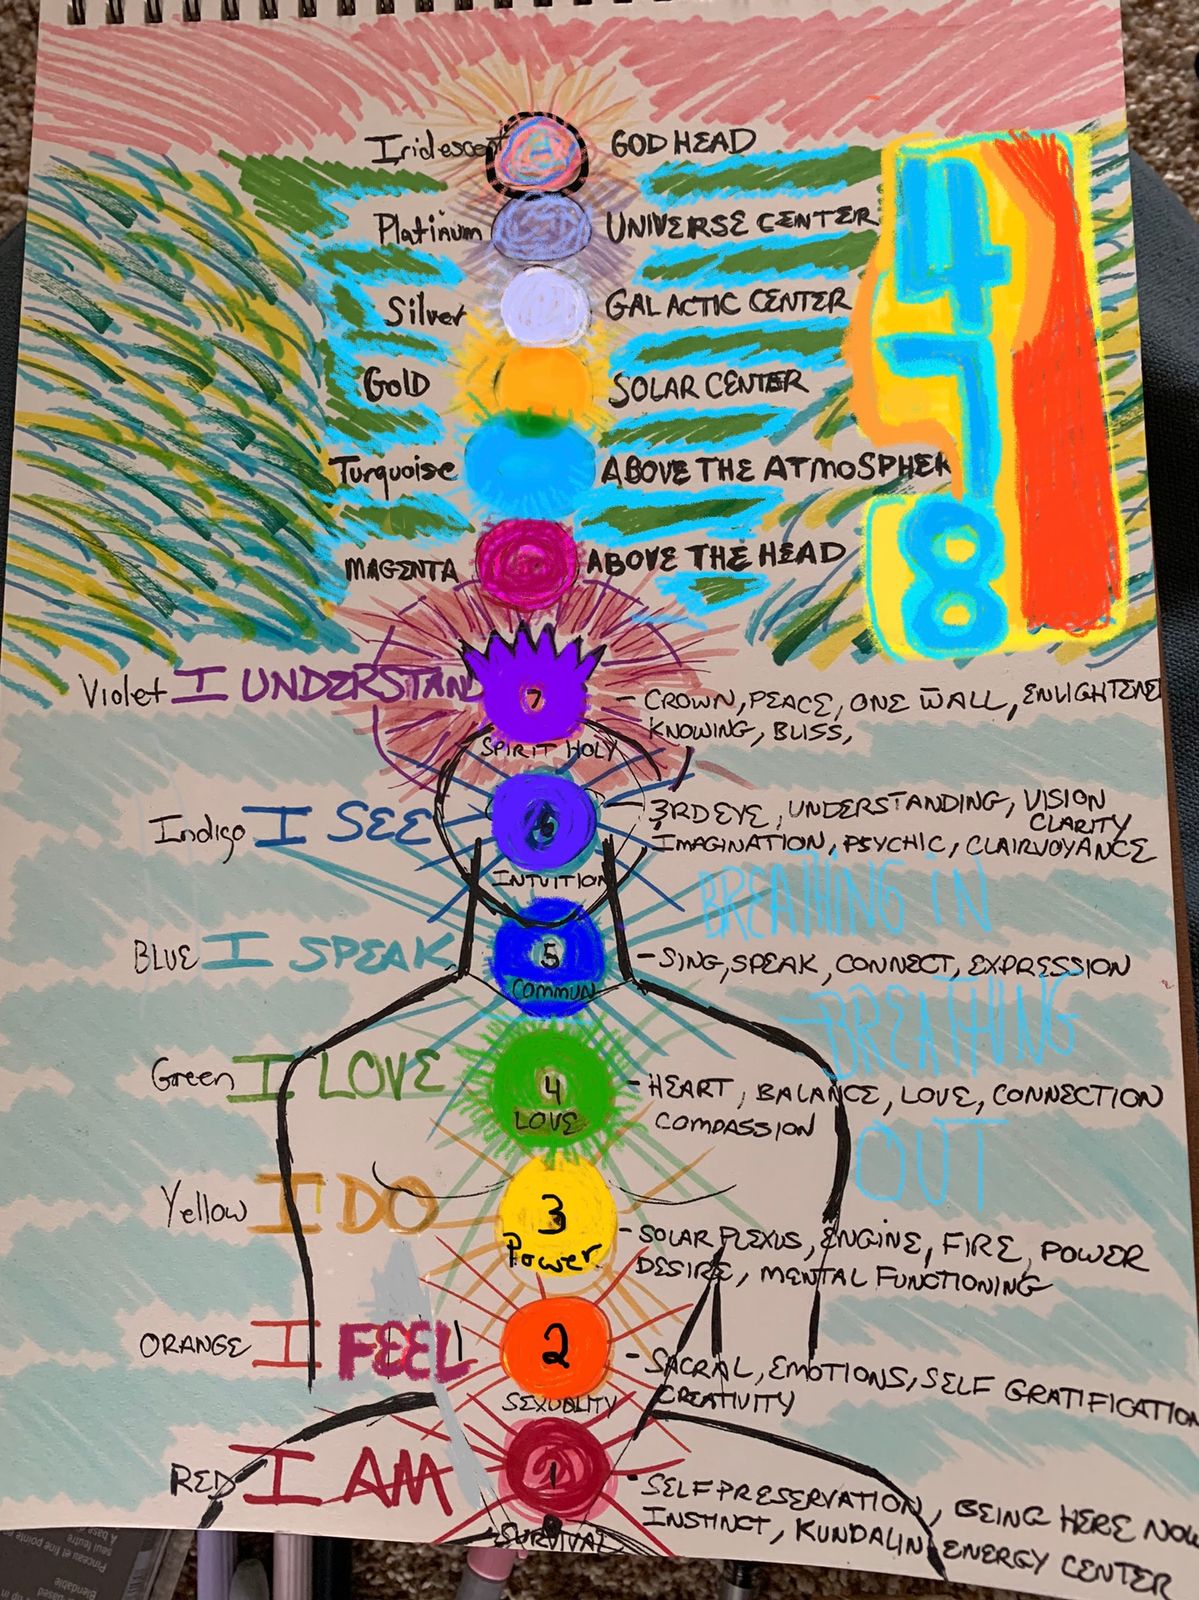 Iridescent GOD HEAD
Platinum UNIVERSE CENTER
Silver GALACTIC CENTER
Gold SOLAR CENTER
Turquoise ABOVE THE ATMOSPHER
MAGENTA ABOVE THE HEAD
4
7
8
Violet I UNDERSTAND 7 - CROWN, PEACE, ONE W ALL, ENLIGHTENE
KNOWING, BLISS,
SPIRIT HOLY
Indigo I SEE 6 - 3RD EYE, UNDERSTANDING, VISION
CLARITY
IMAGINATION, PSYCHIC, CLAIRVOYANCE
INTUITION
BREATHING IN
BLUE I SPEAK 5 - SING, SPEAK, CONNECT, EXPRESSION
COMMUN
BREATHING
Green I LOVE 4 - HEART, BALANCE, LOVE, CONNECTION
LOVE COMPASSION
OUT
Yellow I DO 3 - SOLAR PLEXUS, ENGINE, FIRE, POWER
Power DESIRE, MENTAL FUNCTIONING
ORANGE I FEEL 2 - SACRAL, EMOTIONS, SELF GRATIFICATION
SEXUALITY CREATIVITY
RED I AM 1 - SELF PRESERVATION, BEING HERE NOW
INSTINCT, KUNDALIN ENERGY CENTER
SURVIVAL